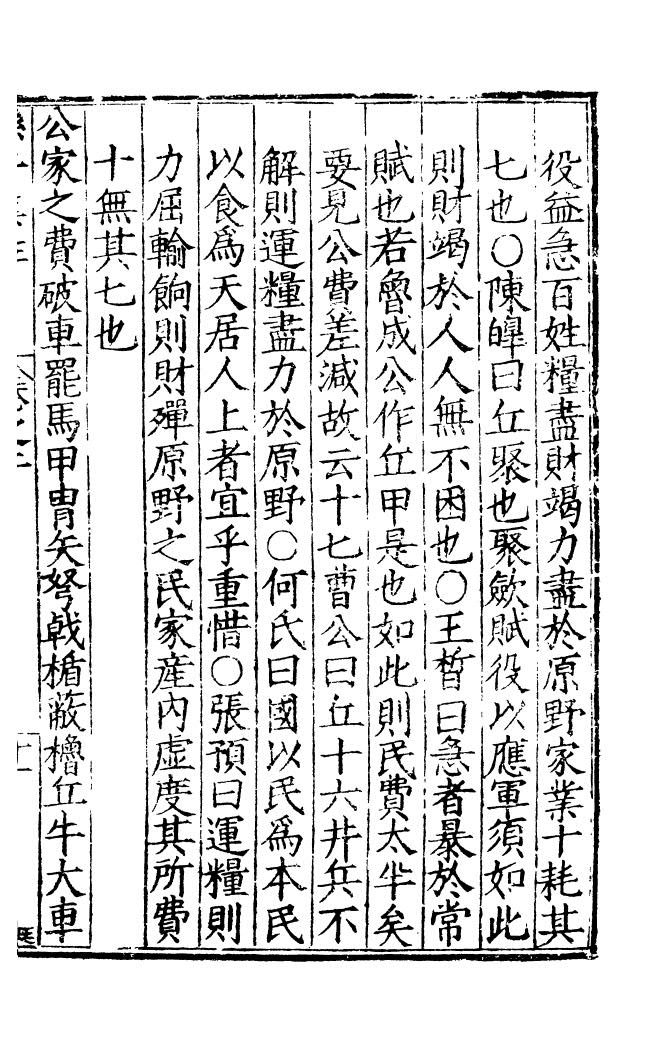 役益急百姓糧盡財竭力盡於原野家業十耗其
七也○陳皥曰丘聚也聚斂賦役以應軍須如此
則財竭於人人無不困也○王晳曰急者暴於常
賦也若魯成公作丘甲是也如此則民費太半矣
要見公費差減故云十七曹公曰丘十六井兵不
解則運糧盡力於原野○何氏曰國以民爲本民
以食爲天居人上者宜乎重惜○張預曰運糧則
力屈輸餉則財殫原野之民家産内虛度其所費
十無其七也
公家之費破車罷馬甲冑矢弩戟楯蔽櫓丘牛大車